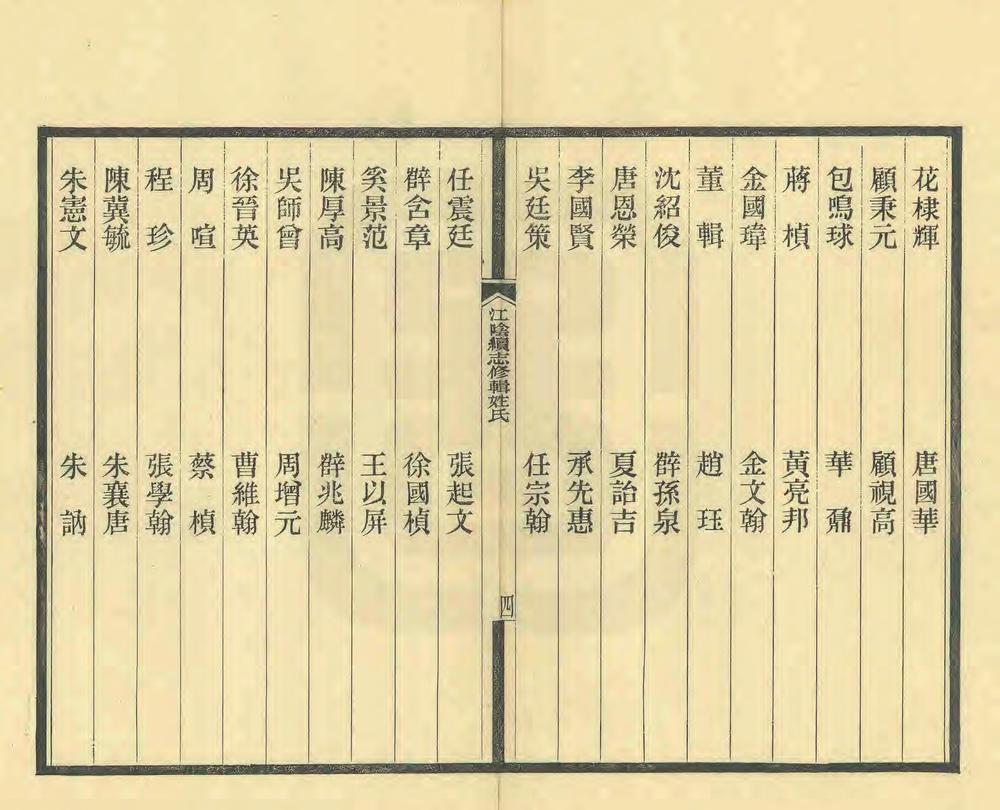 花棣輝　唐國華
顧秉元　顧視高
包鳴球　華鼐
蔣楨　黃亮邦
金國瑋　金文翰
董輯　趙珏
沈紹俊　薜孫泉
唐恩榮　夏詒吉
李國賢　承先惠
吳廷策　任宗翰
江陰續志修輯姓氏
四
任震廷　張起文
薜含章　徐國楨
奚景范　王以屏
陳厚高　薜兆麟
吳師曾　周增元
徐晉英　曹維翰
周喧　蔡楨
程珍　張學翰
陳冀毓　朱襄唐
朱憲文　朱訥